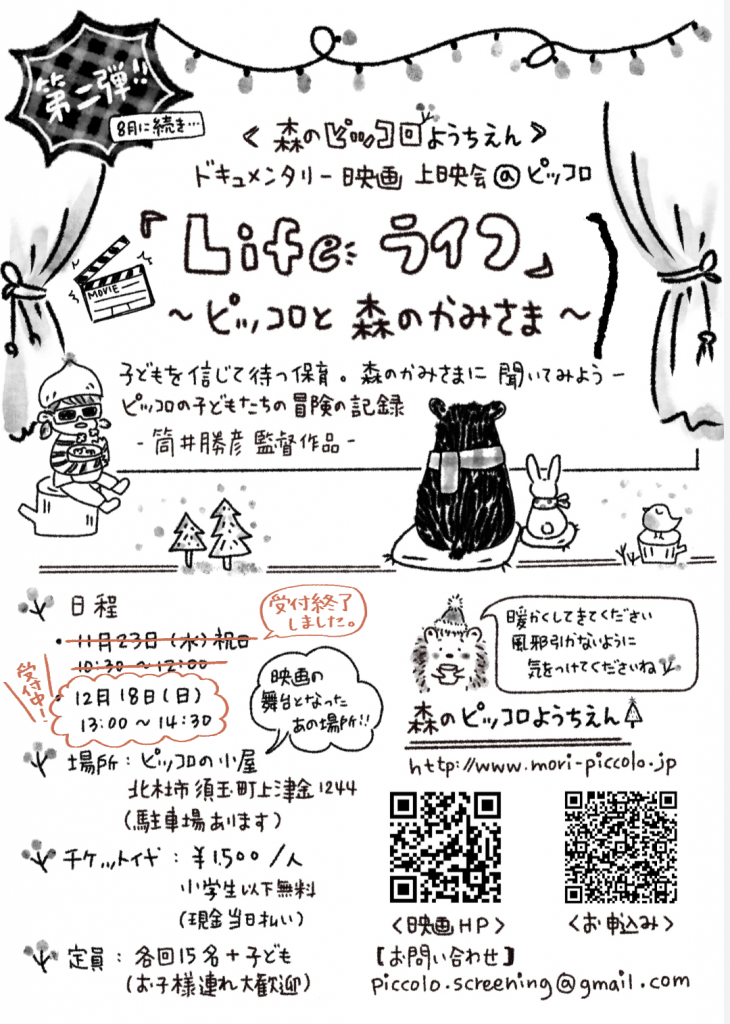 第二弾!!
8月に続き…
< 森のピッコロようちえん >
ドキュメンタリー映画 上映会@ピッコロ
『Life ライフ』
～ピッコロと 森のかみさま～
MOVIE
子どもを信じて待つ保育。森のかみさまに 聞いてみようー
ピッコロの子どもたちの冒険の記録
-筒井勝彦 監督作品-
日程
受付終了
しました。
・11月23日(水)祝日
10:30～12:00
受付中!
・12月18日(日)
13:00～14:30
映画の
舞台となった
あの場所!!
場所:ピッコロの小屋
北杜市須玉町上津金1244
(駐車場あります)
チケット代:¥1,500/人
小学生以下無料
(現金当日払い)
定員:各回15名+子ども
(お子様連れ大歓迎)
暖かくしてきてください
風邪引かないように
気をつけてくださいね
森のピッコロようちえん
http://www.mori-piccolo.jp
<映画HP>
<お申込み>
【お問い合わせ】
piccolo.screening@gmail.com